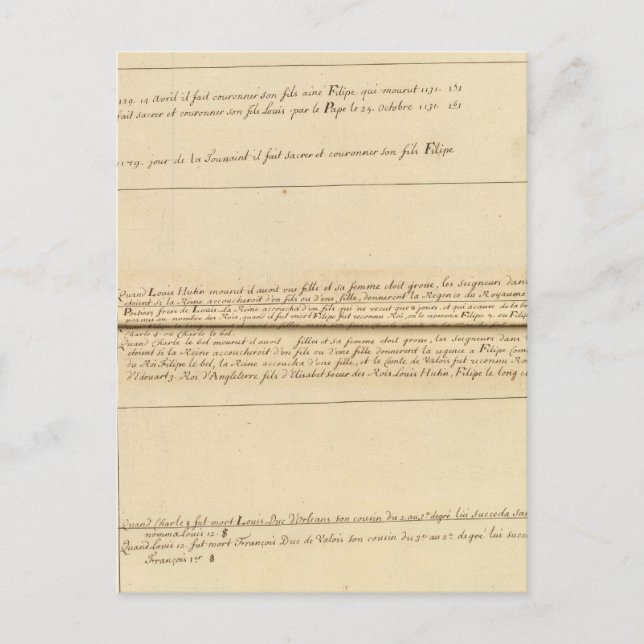 1129. 14 Avril il fait couronner son fils ainé Filipe qui mourut 1131.
fait sacrer et couronner son fils Louis par le Pape le 25. Octobre 1131.
1179. jour de la Toussaint il fait sacrer et couronner son fils Filipe
Quand Louis Hutin mourut il avoit une fille et sa femme etoit grose, les seigneurs dans
etoient si la Reine accoucheroit d'on fils ou d'one fille, donnerent la Regence du Royaume
Poitiers frere de Louis. La Reine accoucha d'on fils qui ne vecut que 8 jours, et qui acause de la
pas mis au nombre des Rois. quand il fut mort Filipe fut reconnu Roi, on le nomma Filipe 5. ou Filip
Charle 4. ou Charle le bel.
Quand Charle le bel mourut il avoit filles et sa femme etoit grose, les Seigneurs dans
etoient si la Reine accoucheroit d'on fils ou d'one fille donnerent la regence a Filipe Com
du Roi Filipe le bel, la Reine accoucha d'one fille, et le Comte de Valois fut reconnu Ro
d'Edouart 3. Roi d'Angleterre fils d'Elisabet soeur des Rois Louis Hutin, Filipe le long e
Quand Charle 8 fut mort Louis Duc d'Orleans son cousin du 2. au 3e degré lui succeda san
nomma Louis 12. $
Quand Louis 12. fut mort François Duc de Valois son cousin du 3e au 2e degré lui succ
François 1er $